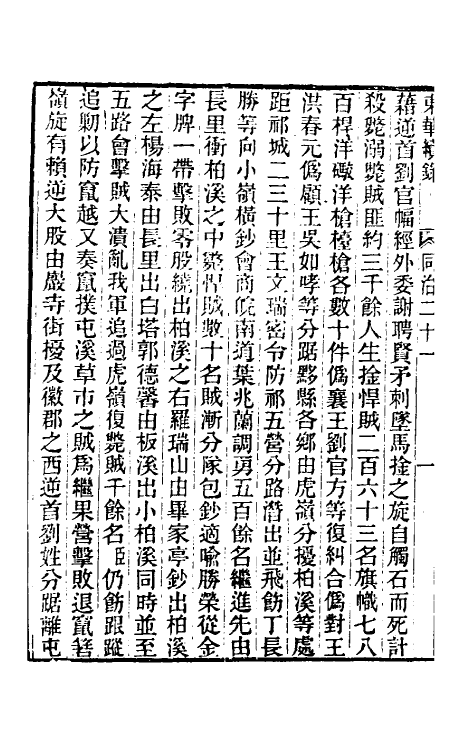 東華續錄　同治二十一　一
藉逆首劉官幅經外委謝聘賢矛刺墜馬捦之旋自觸石而死計
殺斃溺斃賊匪約三千餘人生捦悍賊二百六十三名旗幟七八
百桿洋礮洋槍檯槍各數十件偽襄王劉官方等復糾合偽對王
洪春元偽顧王吳如孝等分踞黟縣各鄉由虎嶺分擾柏溪等處
距祁城二三十里王文瑞密令防祁五營分路潛出並飛飭丁長
勝等向小嶺橫鈔會商皖南道葉兆蘭調勇五百餘名繼進先由
長里衝柏溪之中斃悍賊數十名賊漸分隊包鈔適喻勝榮從金
字牌一帶擊敗零股繞出柏溪之右羅瑞山由畢家亭鈔出柏溪
之左楊海泰由長里出白塔郭德馨由板溪出小柏溪同時並至
五路會擊賊大潰亂我軍追過虎嶺復斃賊千餘名臣仍飭跟蹤
追勦以防竄越又奏竄撲屯溪草市之賊為繼果營擊敗退竄箬
嶺旋有賴逆大股由嚴寺街擾及徽郡之西逆首劉姓分踞離屯